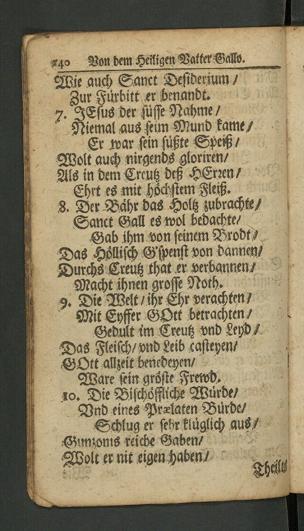 240 Von dem Heiligen Vatter Gallo.
Wie auch Sanct Desiderium/
Zur Fürbitt er benandt.
7. JEsus der süsse Nahme/
Niemal aus seim Mund kame/
Er war sein süßte Speiß/
Wolt auch nirgends gloriren/
Als in dem Creutz deß HErren/
Ehrt es mit höchstem Fleiß.
8. Der Bähr das Holtz zubrachte/
Sanct Gall es wol bedachte/
Gab ihm von seinem Brodt/
Das Höllisch G'spenst von dannen/
Durchs Creutz that er verbannen/
Macht ihnen grosse Noth.
9. Die Welt/ ihr Ehr verachten/
Mit Eyffer GOtt betrachten/
Gedult im Creutz vnd Leyd/
Das Fleisch/ vnd Leib casteyen/
GOtt allzeit benedeyen/
Ware sein gröste Frewd.
10. Die Bischöffliche Würde/
Vnd eines Prælaten Bürde/
Schlug er sehr klüglich aus/
Gunzonis reiche Gaben/
Wolt er nit eigen haben/
Theilts